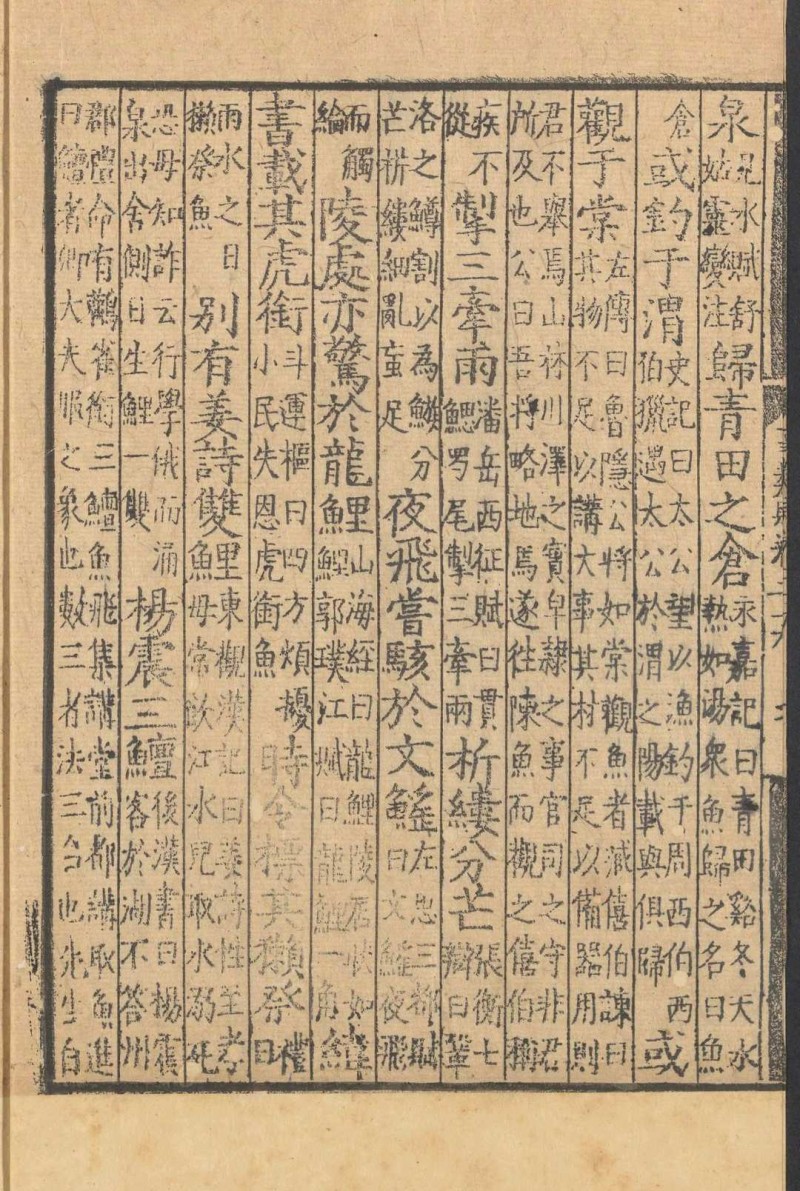 泉見水賦舒姑靈變注歸青田之倉永嘉記曰青田谿冬天水熱如湯衆魚歸之名曰魚
倉或釣于渭史記曰太公望以漁釣千周西伯西伯獵遇太公於渭之陽載與俱歸或
觀于棠左傳曰魯隱公將如棠觀魚者臧僖伯諫曰其物不足以講大事其材不足以備器用則
君不舉焉山林川澤之實皁隸之事官司之守非君所及也公曰吾將略地焉遂往陳魚而觀之僖伯稱
疾不從掣三牽兩潘岳西征賦曰貫鰓罗尾掣三牽兩析縷分芒張衡七辯曰鞏
洛之鱒割以為鮮分芒栟縷細亂䖝足夜飛嘗駭於文鰩左思三都賦曰文鰩夜飛
而觸綸陵處亦驚於龍鯉山海經曰龍鯉陵居狀如鯉郭璞江賦曰龍鯉一角緯
書載其虎銜斗運樞曰四方煩擾小民失恩虎銜魚時令標其獺祭禮曰
雨水之日獺祭魚別有姜詩雙鯉東觀漢記曰姜詩性至孝母常飲江水兒取水溺死
恐母知詐云行學俄而涌泉出舍側日生鯉一雙楊震三鱣後漢書曰楊震客於湖不答州
郡禮命有鸛雀銜三鱣魚飛集講堂前都講取魚進曰鱣者卿大夫服之象也數三者法三台也先生自